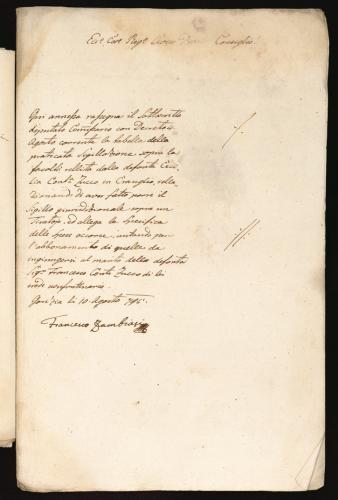 Consiglio
Qui annessa rassegna il sottoscritto
deputato Commissario con Decreto
Agosto corrente la tabella della
praticata Sigillazione sopra la
facoltà relitta dalla defonta Ceci-
lia Conti Zucco in Crauglio, rela-
zionando di aver fatto porre il
Sigillo giurisdizionale sopra un
ed allega la Specifica
delle spese occorse, instando per
l'abbonamento di quelle da
ingiungersi al marito della defonta
Sigr Francesco Conti Zucco di lei
erede usufruttuario.
Gorizia li 10 Agosto
Francesco